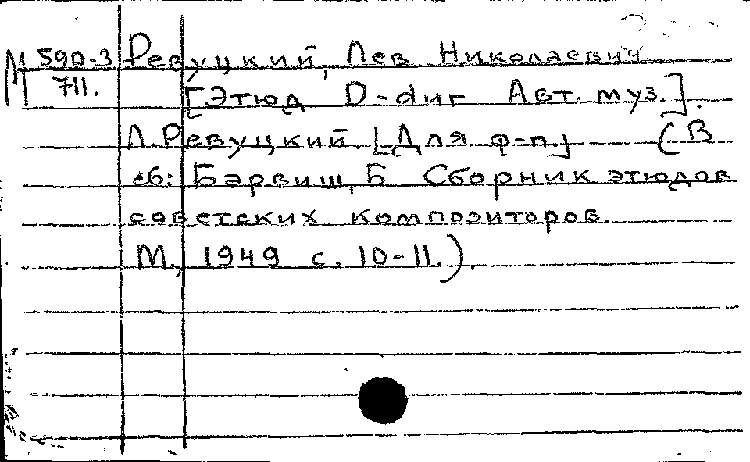 М 590-3 Ревуцкий, Лев Николаевич
711. [Этюд D-dur Авт. муз.].
Л. Ревуцкий [Для ф-п.] (В
сб: Барвиш, Б Сборник этюдов
советских композиторов.
М., 1949 с. 10-11.).